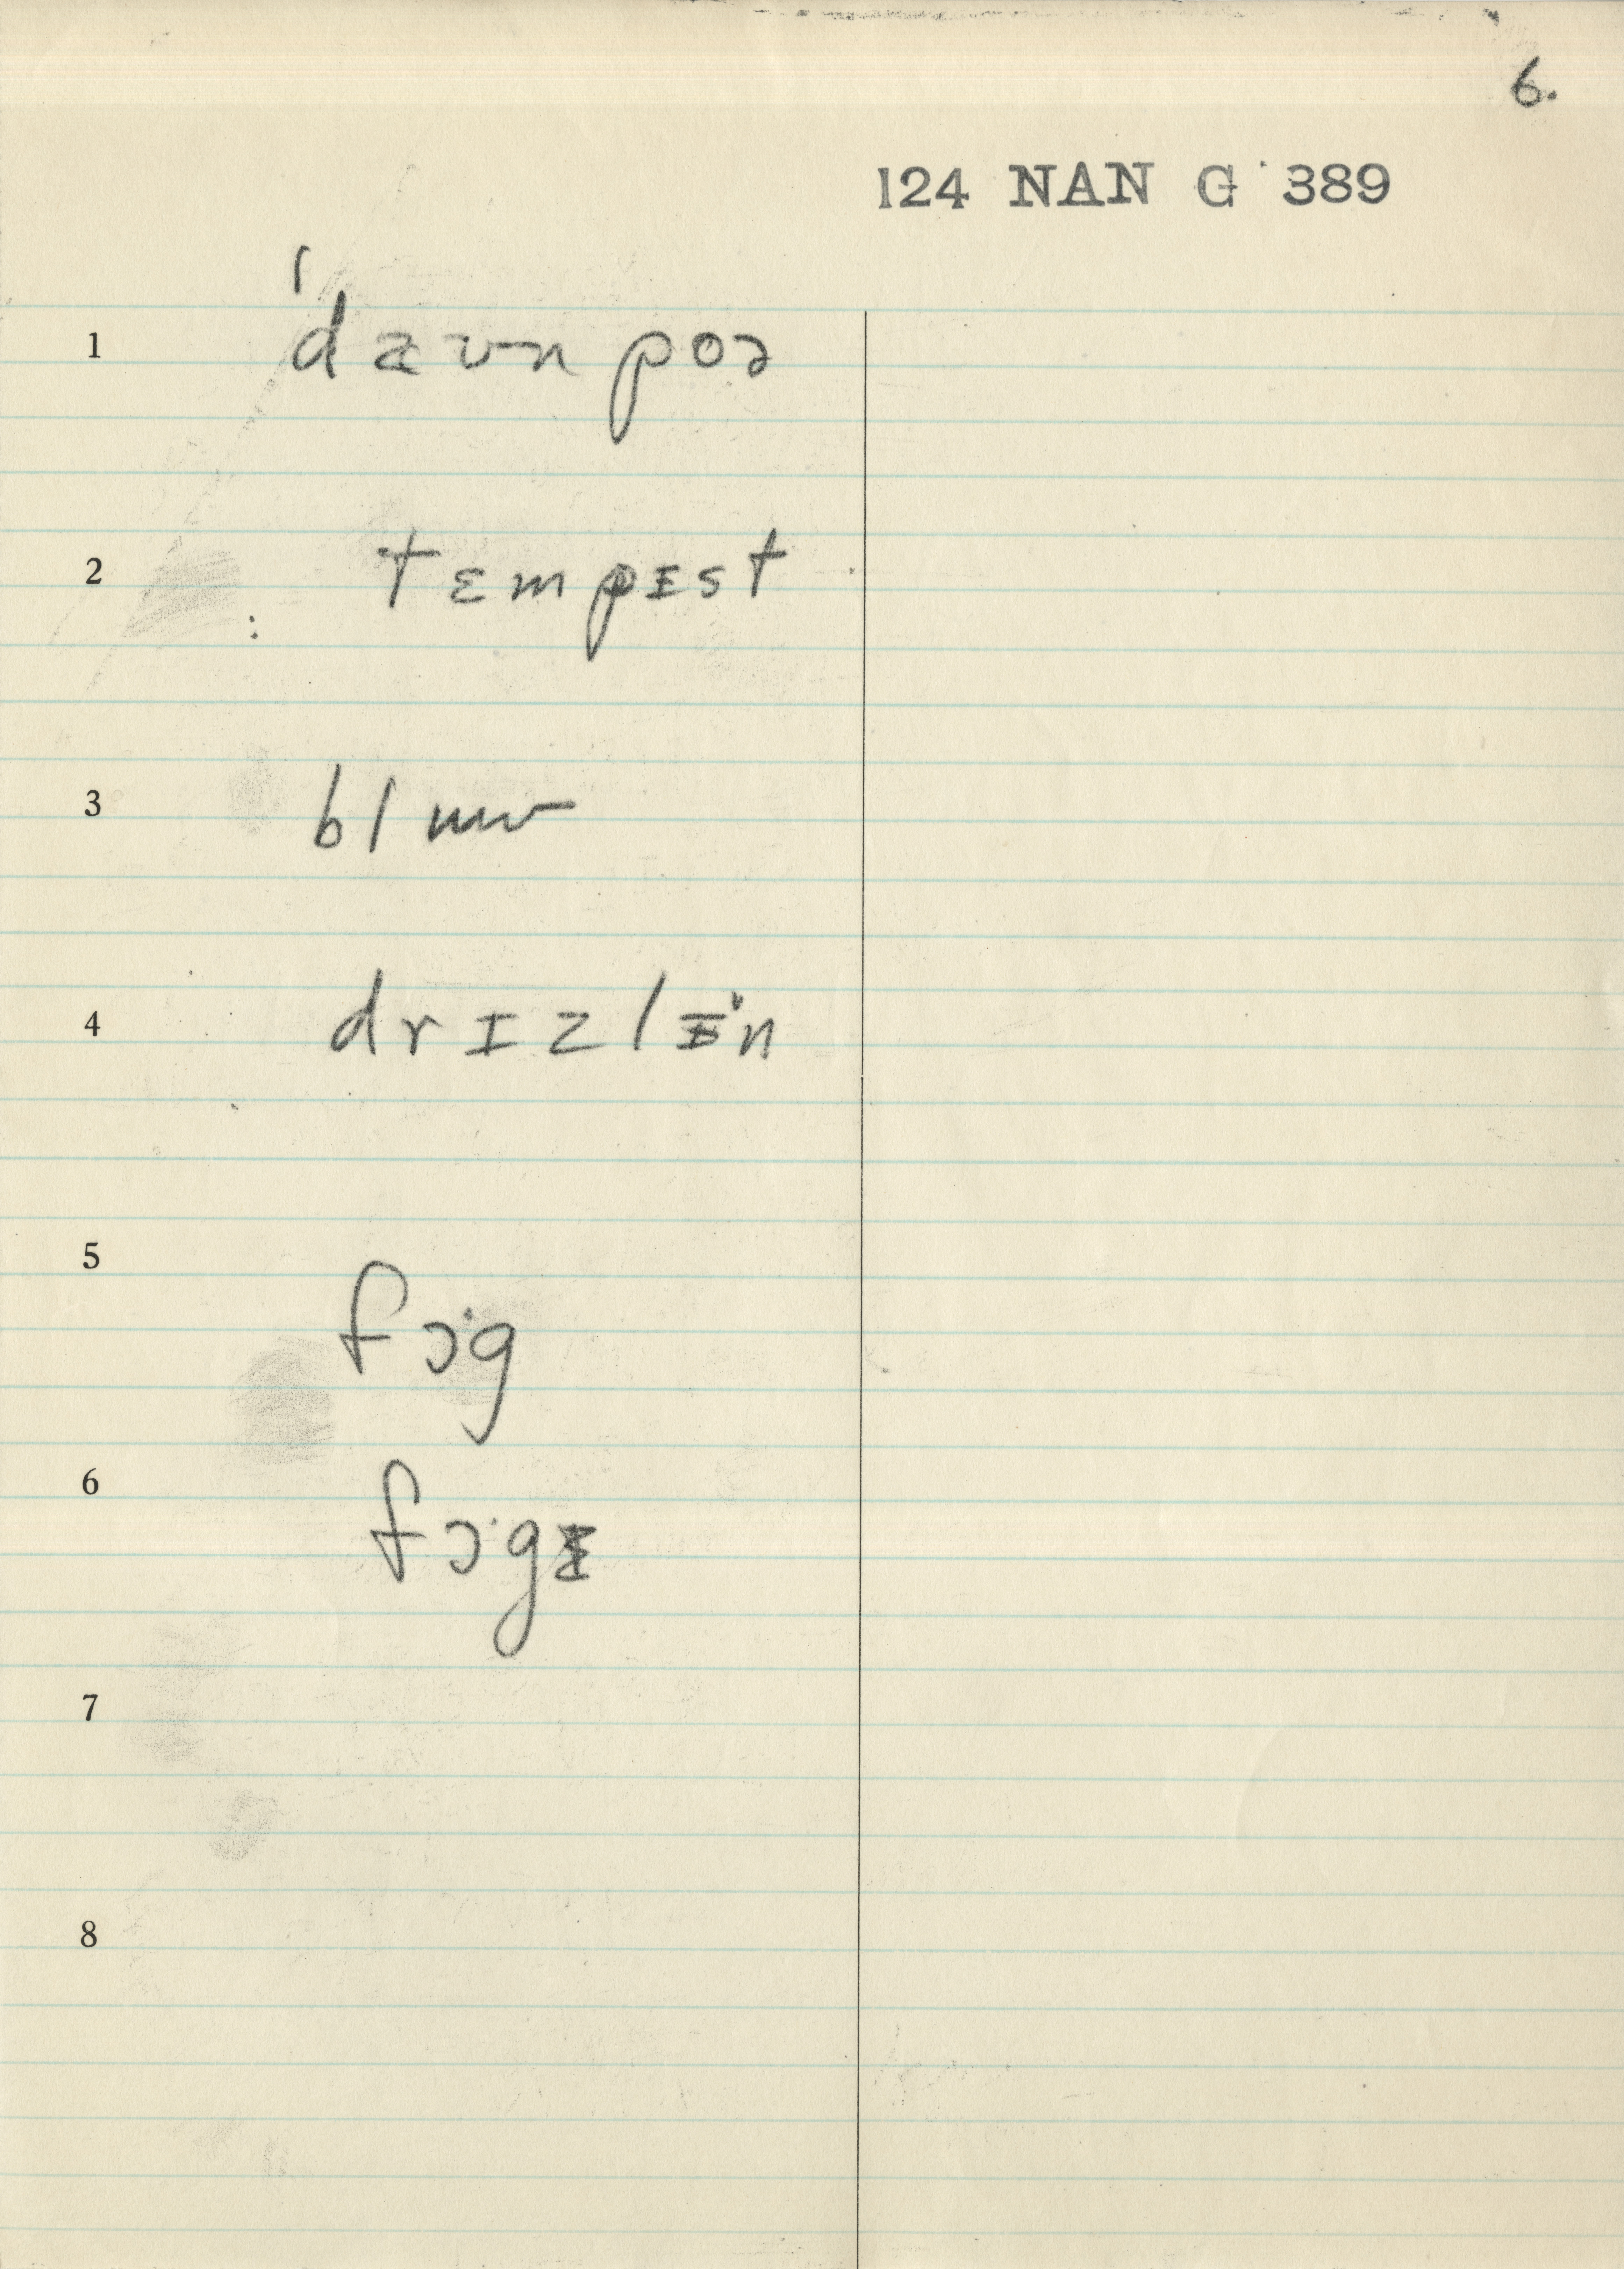 6.
124 NAN G 389
1 ˈdæʊn poə
2 tɛmpɪst
3 blɯʊ
4 drɪzlɪˑn
5 fɔˑg
6 fɔˑgɪ
7
8